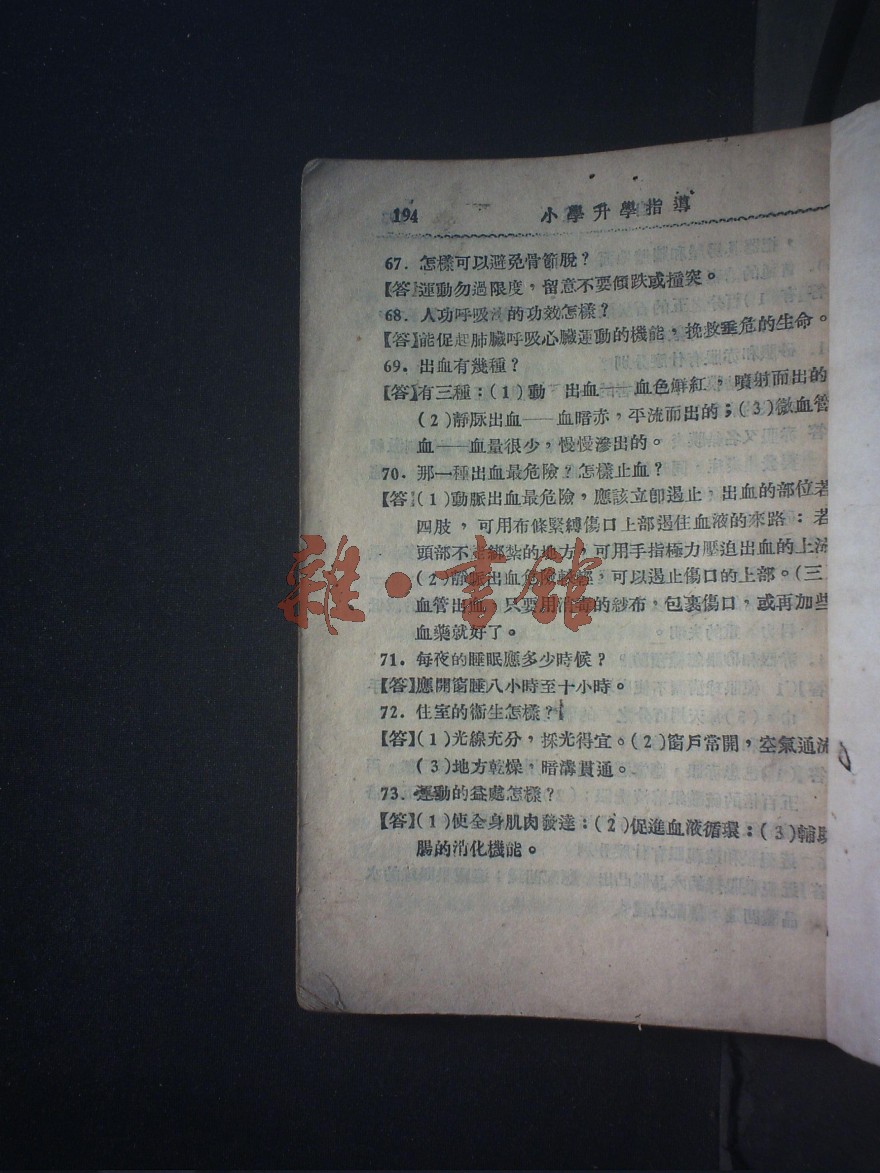 194
小學升學指導
67．怎樣可以避免骨節脫？
【答】運動勿過限度，留意不要傾跌或撞突。
68．人功呼吸的功效怎樣？
【答】能促起肺臟呼吸心臟運動的機能，挽救垂危的生命。
69．出血有幾種？
【答】有三種：(1)動 出血——血色鮮紅，噴射而出的
(2)靜脈出血——血暗赤，平流而出的；(3)微血管
血——血量很少，慢慢滲出的。
70．那一種出血最危險？怎樣止血？
【答】(1)動脈出血最危險，應該立卽遏止，出血的部位若
四肢，可用布條緊縛傷口上部遏住血液的來路：若
頭部不 綁紮的地方，可用手指極力壓迫出血的上流
(2)靜脈出血危險較輕，可以遏止傷口的上部。(三
血管出血，只要用消毒的紗布，包裹傷口，或再加些
血藥就好了。
71．每夜的睡眠應多少時候？
【答】應開窗睡八小時至十小時。
72．住室的衞生怎樣？
【答】(1)光線充分，採光得宜。(2)窗戶常開，空氣通流
(3)地方乾燥，暗溝貫通。
73．運動的益處怎樣？
【答】(1)使全身肌肉發達：(2)促進血液循環：(3)輔助
腸的消化機能。
雜·書館